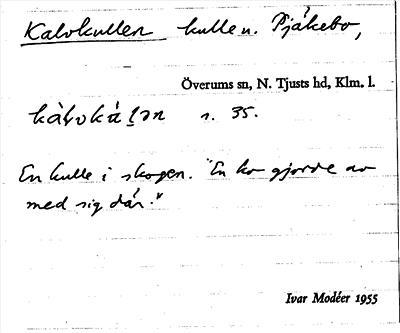 Kalvkullen kulle n. Pjäkebo,
Överums sn, N. Tjusts hd, Klm. l.
s. 35.
En kulle i skogen. "En ko gjorde av
med sig där."
Ivar Modéer 1955